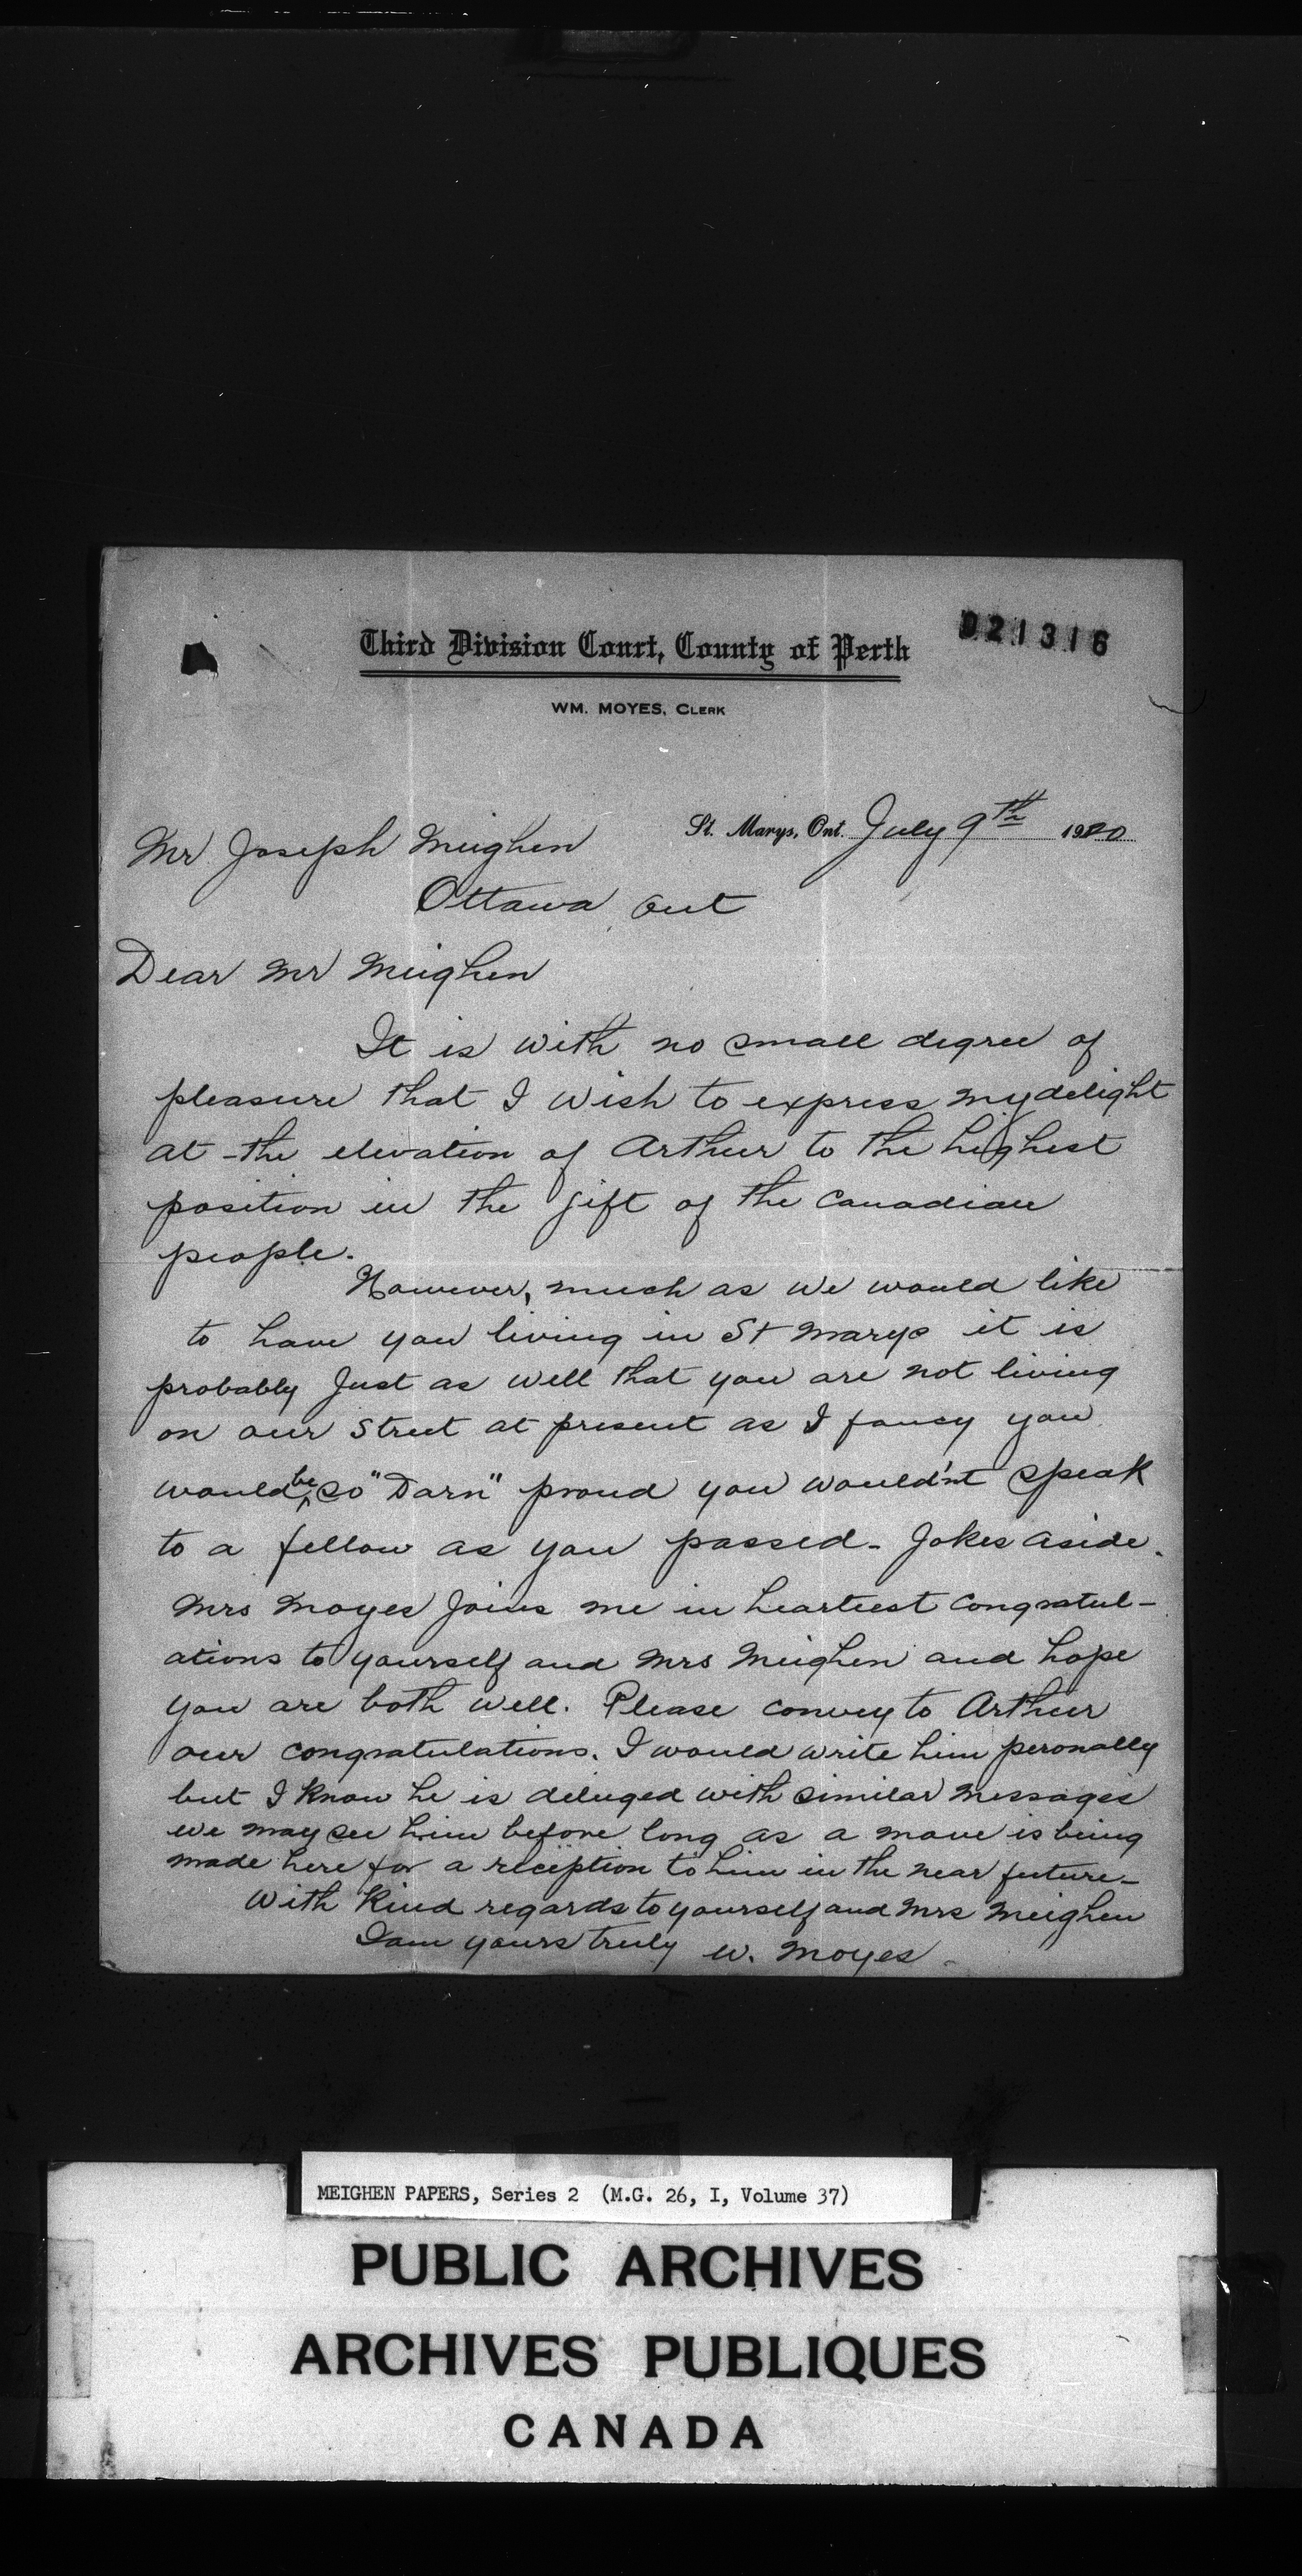 Third Division Court, County of Perth
021316
WM. MOYES, CLERK
St. Marys, Ont. July 9th 1920
Mr Joseph Meighen
Ottawa Ont
Dear Mr Meighen
It is with no small degree of
pleasure that I wish to express my delight
at the elevation of Arthur to the highest
position in the gift of the Canadian
people.
However, much as we would like
to have you living in St Marys it is
probably just as well that you are not living
on our street at present as I fancy you
would be so "Darn" proud you would'nt speak
to a fellow as you passed - Jokes aside.
Mrs Moyes joins me in heartiest congratul-
ations to yourself and Mrs Meighen and hope
you are both well. Please convey to Arthur
our congratulations. I would write him peronally
but I know he is deluged with similar messages
we may see him before long as a move is being
made here for a reception to him in the near future -
With kind regards to yourself and Mrs Meighen
I am yours truly W. Moyes
MEIGHEN PAPERS, Series 2 (M.G. 26, I, Volume 37)
PUBLIC ARCHIVES
ARCHIVES PUBLIQUES
CANADA